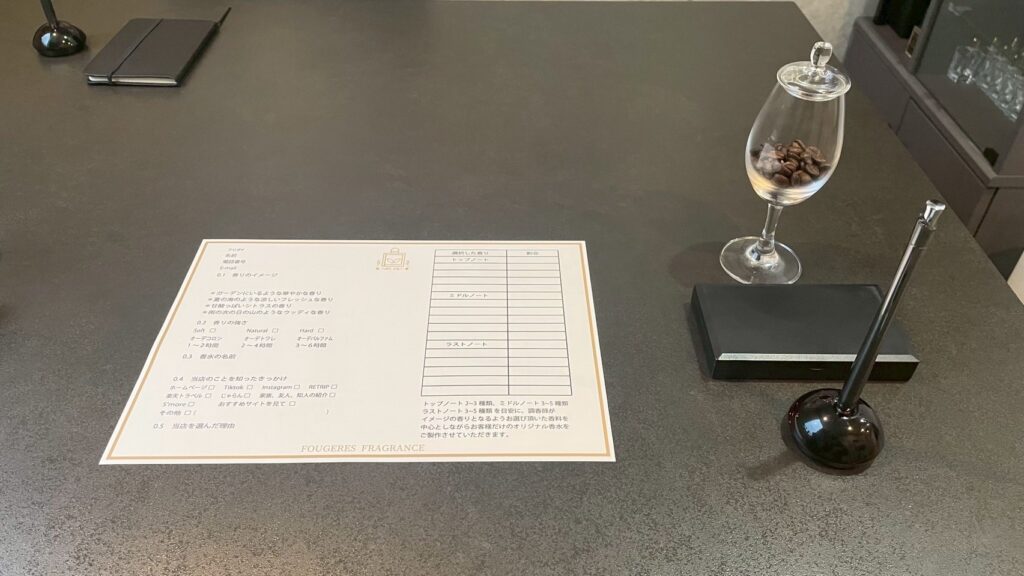 フリガナ
名前
電話番号
E-mail
0.1 香りのイメージ
＊ガーデンにいるような華やかな香り
＊夏の海のような涼しいフレッシュな香り
＊甘酸っぱいシトラスの香り
＊雨の次の日の山のようなウッディな香り
0.2 香りの強さ
Soft □ Natural □ Hard □
オーデコロン オーデトワレ オーデパルファム
1～2時間 2～4時間 3～6時間
0.3 香水の名前
0.4 当店のことを知ったきっかけ
ホームページ □ Tiktok □ Instagram □ RETRIP □
楽天トラベル □ じゃらん □ 家族、友人、知人の紹介 □
S'more □ おすすめサイトを見て □
その他 □ ( )
0.5 当店を選んだ理由
選択した香り 割合
トップノート
ミドルノート
ラストノート
トップノート 2~3 種類、ミドルノート 3~5 種類
ラストノート 3~5 種類 を目安に、調香師が
イメージの香りとなるようお選び頂いた香料を
中心としながらお客様だけのオリジナル香水を
ご製作させていただきます。
FOUGERES FRAGRANCE